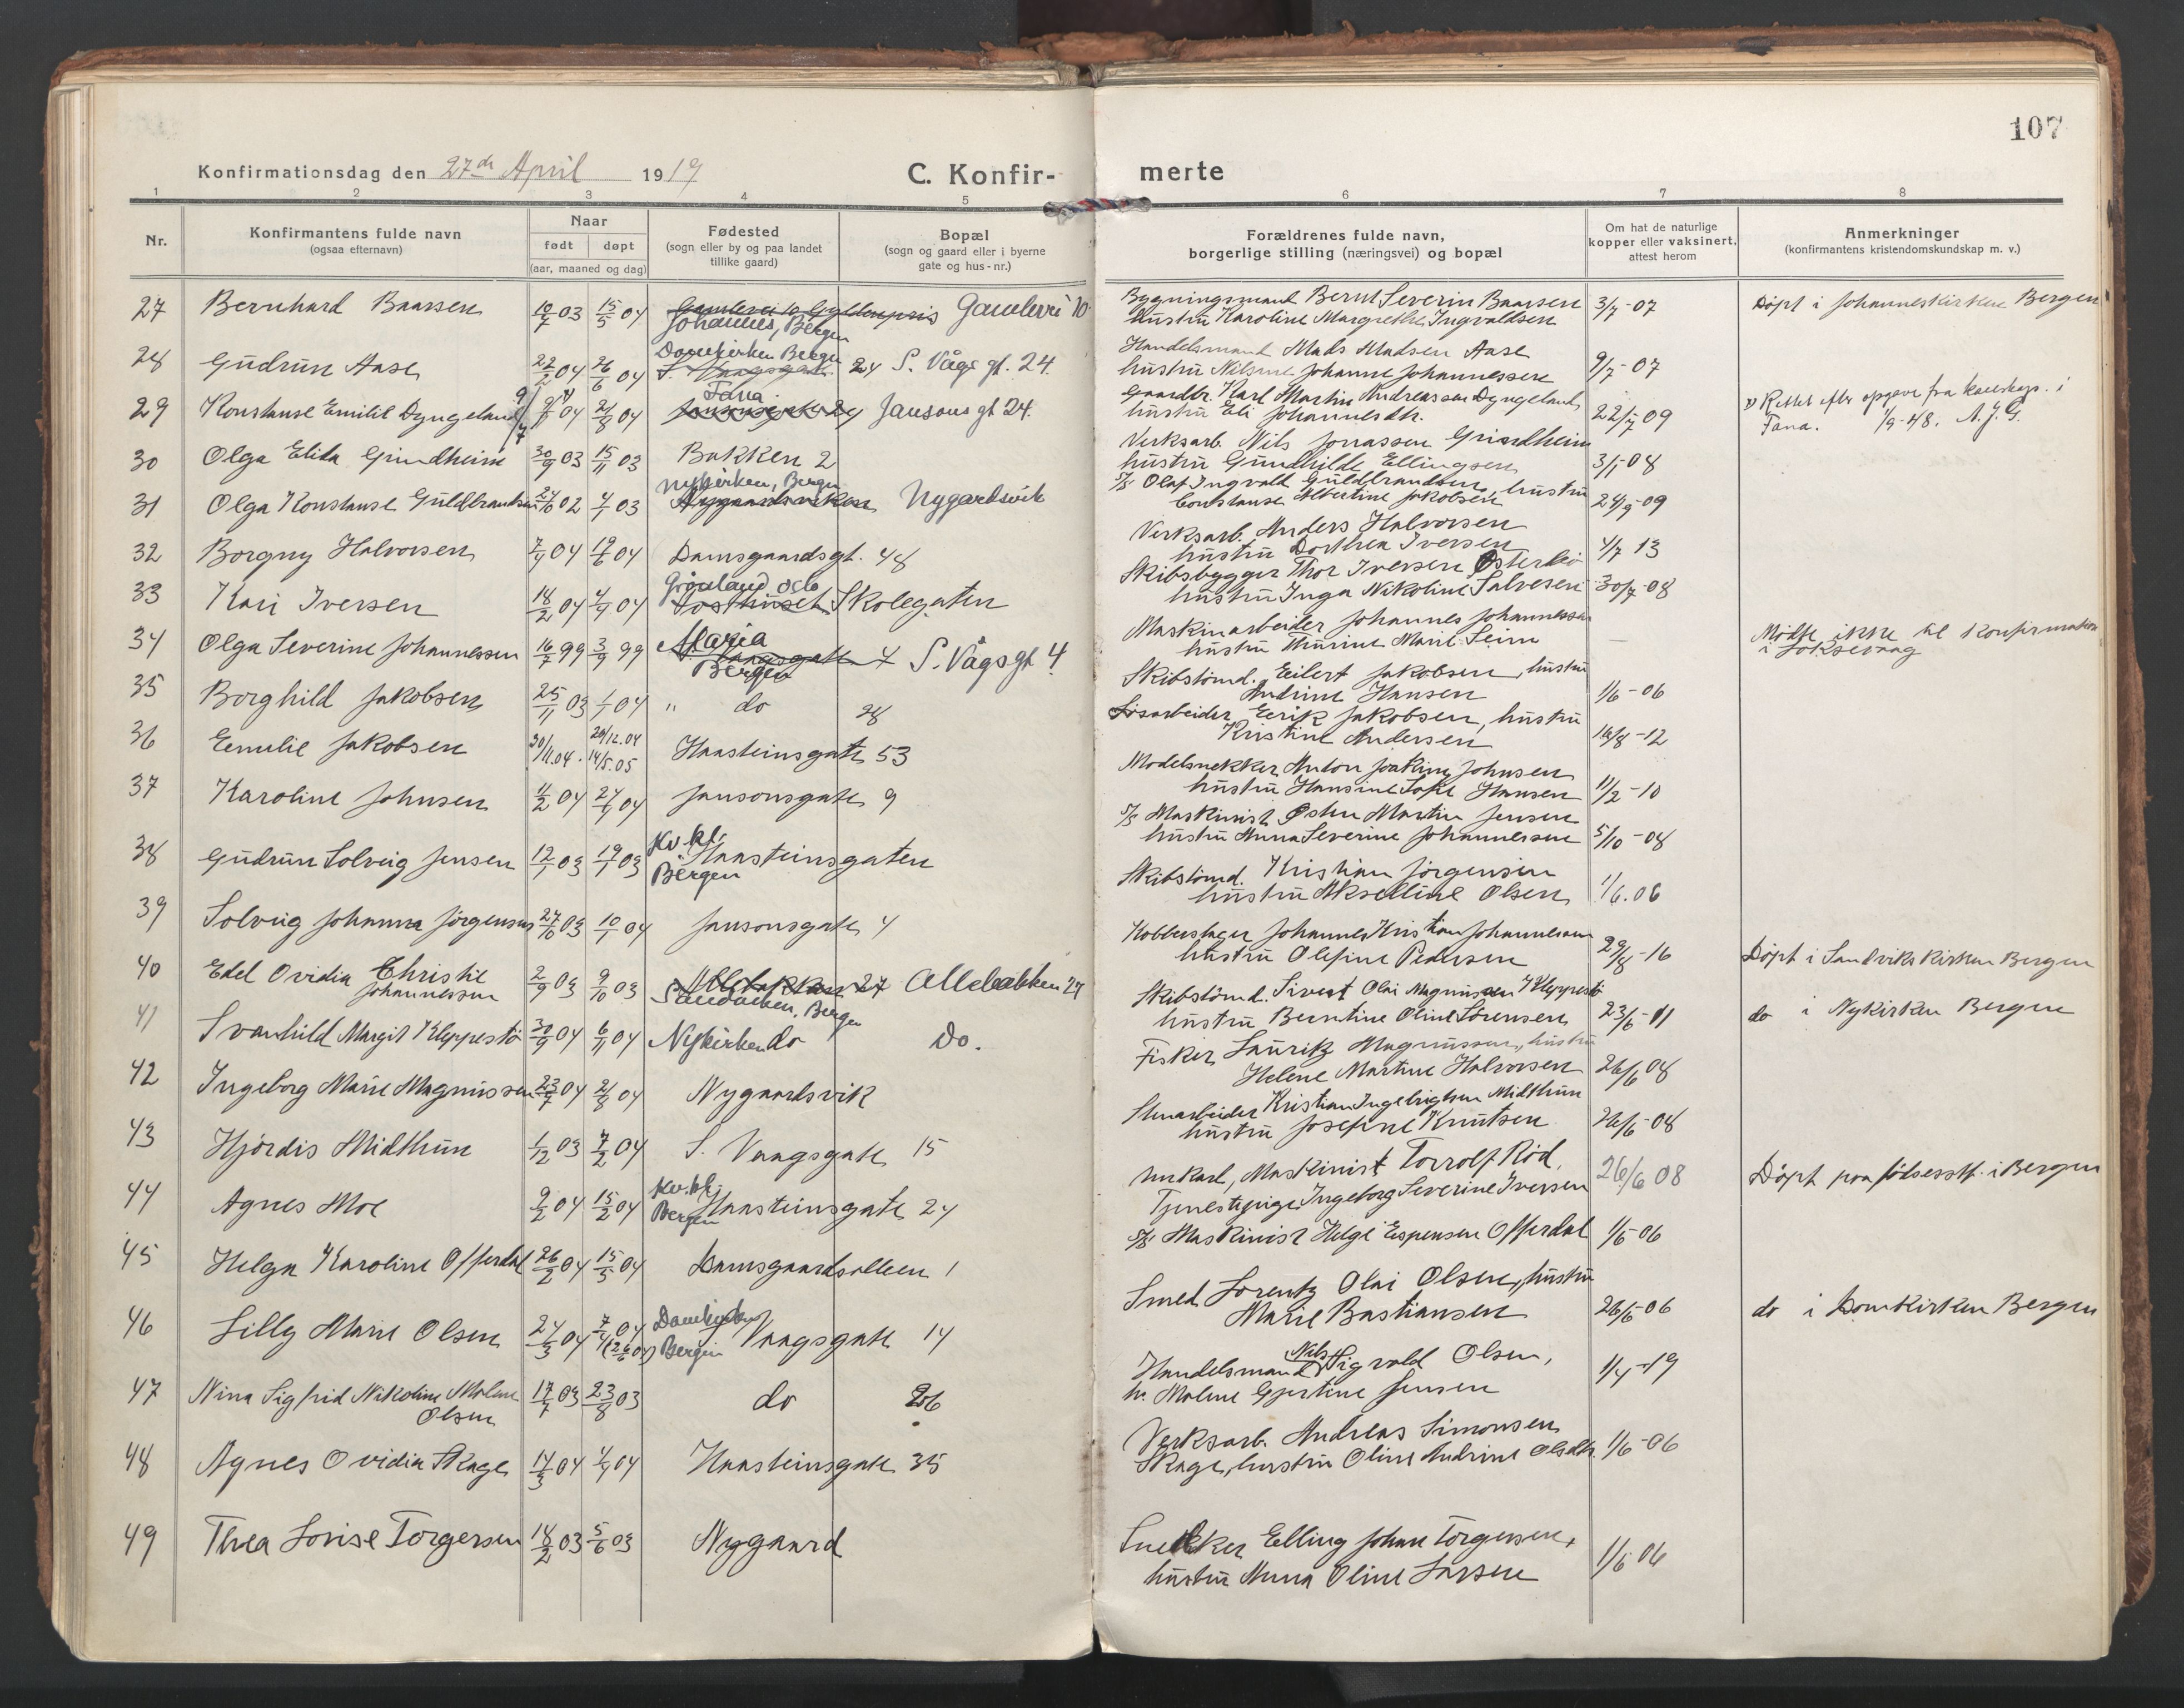 107
Konfirmationsdag den 27de April 1919
C. Konfir-
merte
1 2 3 4 5 6 7 8
Nr.
Konfirmantens fulde navn
(ogsaa efternavn)
Naar
født døpt
(aar, maaned og dag)
Fødested
(sogn eller by og paa landet
tillike gaard)
Bopæl
(sogn og gaard eller i byerne
gate og hus-nr.)
Forældrenes fulde navn,
borgerlige stilling (næringsvei) og bopæl
Om hat de naturlige
kopper eller vaksinert,
attest herom
Anmerkninger
(konfirmantens kristendomskundskap m. v.)
27 Bernhard Baarsen 10/7 03 15/5 04 Gamlevei 10
Johannes, Bergen
Bygningsmand Bernt Severin Baarsen 3/7-07 Döpt i Johanneskirken Bergen
hustru Karoline Margrethe Ingvaldsen
28 Gudrun Aase 22/2 04 26/6 04 Domkirken Bergen 24 S. Vågs gt. 24.
Handelsmand Mads Madsen Aase
hustru Nilsine Johanne Johannessen 9/7-07
29 Konstanse Emilie Dyngeland 21/8 04 Fana Jansons gt 24.
Gaardbr. Karl Martin Andreassen Dyngeland
hustru Eli Johannesdtr. 22/7 09
1) Rettet efter opgave fra i
Fana. 1/9-48. A.J.G.
30 Olga Elida Grindheim 30/9 03 15/11 03 Bakken 2
Verksarb. Nils Jonassen Grindheim
hustru Gundhilde Ellingsen 3/1-08
31 Olga Konstanse Guldbrandsen 24/10 02 4/1 03 Nykirken, Bergen Nygardsvik
S/s Olaf Ingvald Guldbrandsen, hustru
Constanse Albertine Jakobsen 24/9-09
32 Borgny Halvorsen 7/4 04 19/6 04 Damsgaardsgt. 48
Verksarb. Anders Halvorsen
hustru Dorthea Iversen 4/7 13
33 Kari Iversen 18/2 04 4/9 04 Grønland Oslo Skolegaten
Skibsbygger Thor Iversen Østerbö
hustru Inga Nikoline Salvesen 30/7-08
34 Olga Severine Johannessen 16/7 99 3/9 99 Maria Bergen 4 S. Vågsgt 4
Maskinarbeider Johannes Johannessen
hustru Thurine Marie Seim —
Mödte ikke til Konfirmation
i Loksevaag
35 Borghild Jakobsen 25/11 03 1/1 04 " do 28
Skibstömd. Eilert Jakobsen, hustru
Andrine Hansen 1/6-06
36 Emilie Jakobsen 30/11.04. 26/12.04 14/5.05 Haasteinsgate 53
Lösarbeider Eerik Jakobsen, hustru
Kristine Andersen 16/8-12
37 Karoline Johnsen 11/2 04 24/4 04 Jansonsgate 9
Modelsnekker Anton Joakim Johnsen
hustru Hansine Sofie Hansen 11/2-10
38 Gudrun Solveig Jensen 12/1 03 19/7 03 Kv.kl. Bergen Haasteinsgaten
S/s Maskinist Østen Martin Jensen
hustru Anna Severine Johannessen 5/10-08
39 Solveig Johanna Jörgensen 27/10 03 10/1 04 Jansonsgate 4
Skibstömd. Kristian Jörgensen
hustru Akselline Olsen 1/6.06
40 Edel Ovidia Christie 2/9 03 9/10 03 Allebakken 27
Johannessen Sandviken, Bergen
Kobberslager Johannes Kristian Johannessen
hustru Olefine Pedersen 29/8-16 Döpt i Sandviks kirken Bergen
41 Svanhild Margit Kleppestö 30/9 04 6/11 04 Nykirken do Do.
Skibstömd. Sivert Olai Magnussen Kleppestö
hustru Berntine Oline Sörensen 23/6-11 do i Nykirken Bergen
42 Ingeborg Marie Magnussen 23/7 04 21/8 04 Nygaardsvik
Fisker Lauritz Magnussen, hustru
Helene Martine Halvorsen 26/6 08
43 Hjördis Midthun 1/12 03 7/2 04 S. Vaagsgate 15
Stenarbeider Kristian Ingebrigtsen Midthun
hustru Josefine Knutsen 26/6-08
44 Agnes Moe 9/2 04 15/2 04 Kv.kl. Bergen Haasteinsgate 24
Unkarl, Maskinist Torrolf Röd,
Tjenestepige Ingeborg Severine Iversen 26/6 08 Döpt paa födselsstf. i Bergen
45 Helga Karoline Offerdal 26/2 04 15/5 04 Damsgaardsalleen 1
S/s Maskinist Helge Espensen Offerdal 1/6-06
46 Lilly Marie Olsen 24/3 04 7/4 04 (26/6 04) Domkirken Bergen Vaagsgate 14
Smed Lorentz Olai Olsen, hustru
Marie Bastiansen 26/6-06 do i Domkirken Bergen
47 Nina Sigfrid Nikoline Malene 17/7 03 23/8 03 do 26
Olsen
Handelsmand Nils Sigvald Olsen,
h. Malene Gjertine Jensen 1/4-19
48 Agnes Ovidia Skage 14/3 04 4/4 04 Haasteinsgate 35
Verksarb. Andreas Simonsen
Skage, hustru Oline Andrine Olsdtr. 1/6-06
49 Thea Lovise Torgersen 18/2 03 5/6 03 Nygaard
Snekker Elling Johan Torgersen,
hustru Anna Oline Larsen 1/6 06